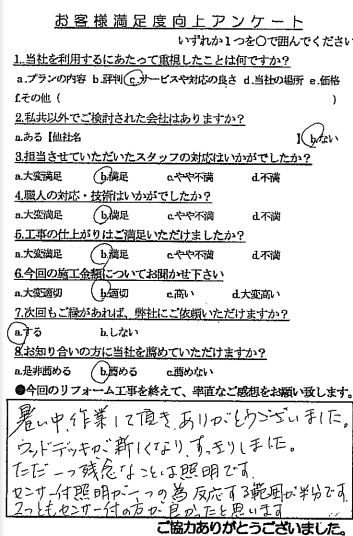 お客様満足度向上アンケート
いずれか１つを○で囲んでください
1.当社を利用するにあたって重視したことは何ですか?
a.プランの内容 b.評判 c.サービスや対応の良さ d.当社の場所 e.価格
f.その他（ ）
2.私共以外でご検討された会社はありますか?
a.ある【他社名 】 b.ない
3.担当させていただいたスタッフの対応はいかがでしたか?
a.大変満足 b.満足 c.やや不満 d.不満
4.職人の対応・技術はいかがでしたか?
a.大変満足 b.満足 c.やや不満 d.不満
5.工事の仕上がりはご満足いただけましたか?
a.大変満足 b.満足 c.やや不満 d.不満
6.今回の施工金額についてお聞かせ下さい
a.大変適切 b.適切 c.高い d.大変高い
7.次回もご縁があれば、弊社にご依頼いただけますか?
a.する b.しない
8.お知り合いの方に当社を薦めていただけますか?
a.是非薦める b.薦める c.薦めない
●今回のリフォーム工事を終えて、率直なご感想をお願い致します。
暑い中、作業して頂き、ありがとうございました。
ウッドデッキが新しくなり、すっきりしました。
ただ一つ残念なことは照明です。
センサー付照明が一つの為反応する範囲が半分です。
2つともセンサー付の方が良かったと思います
ご協力ありがとうございました。